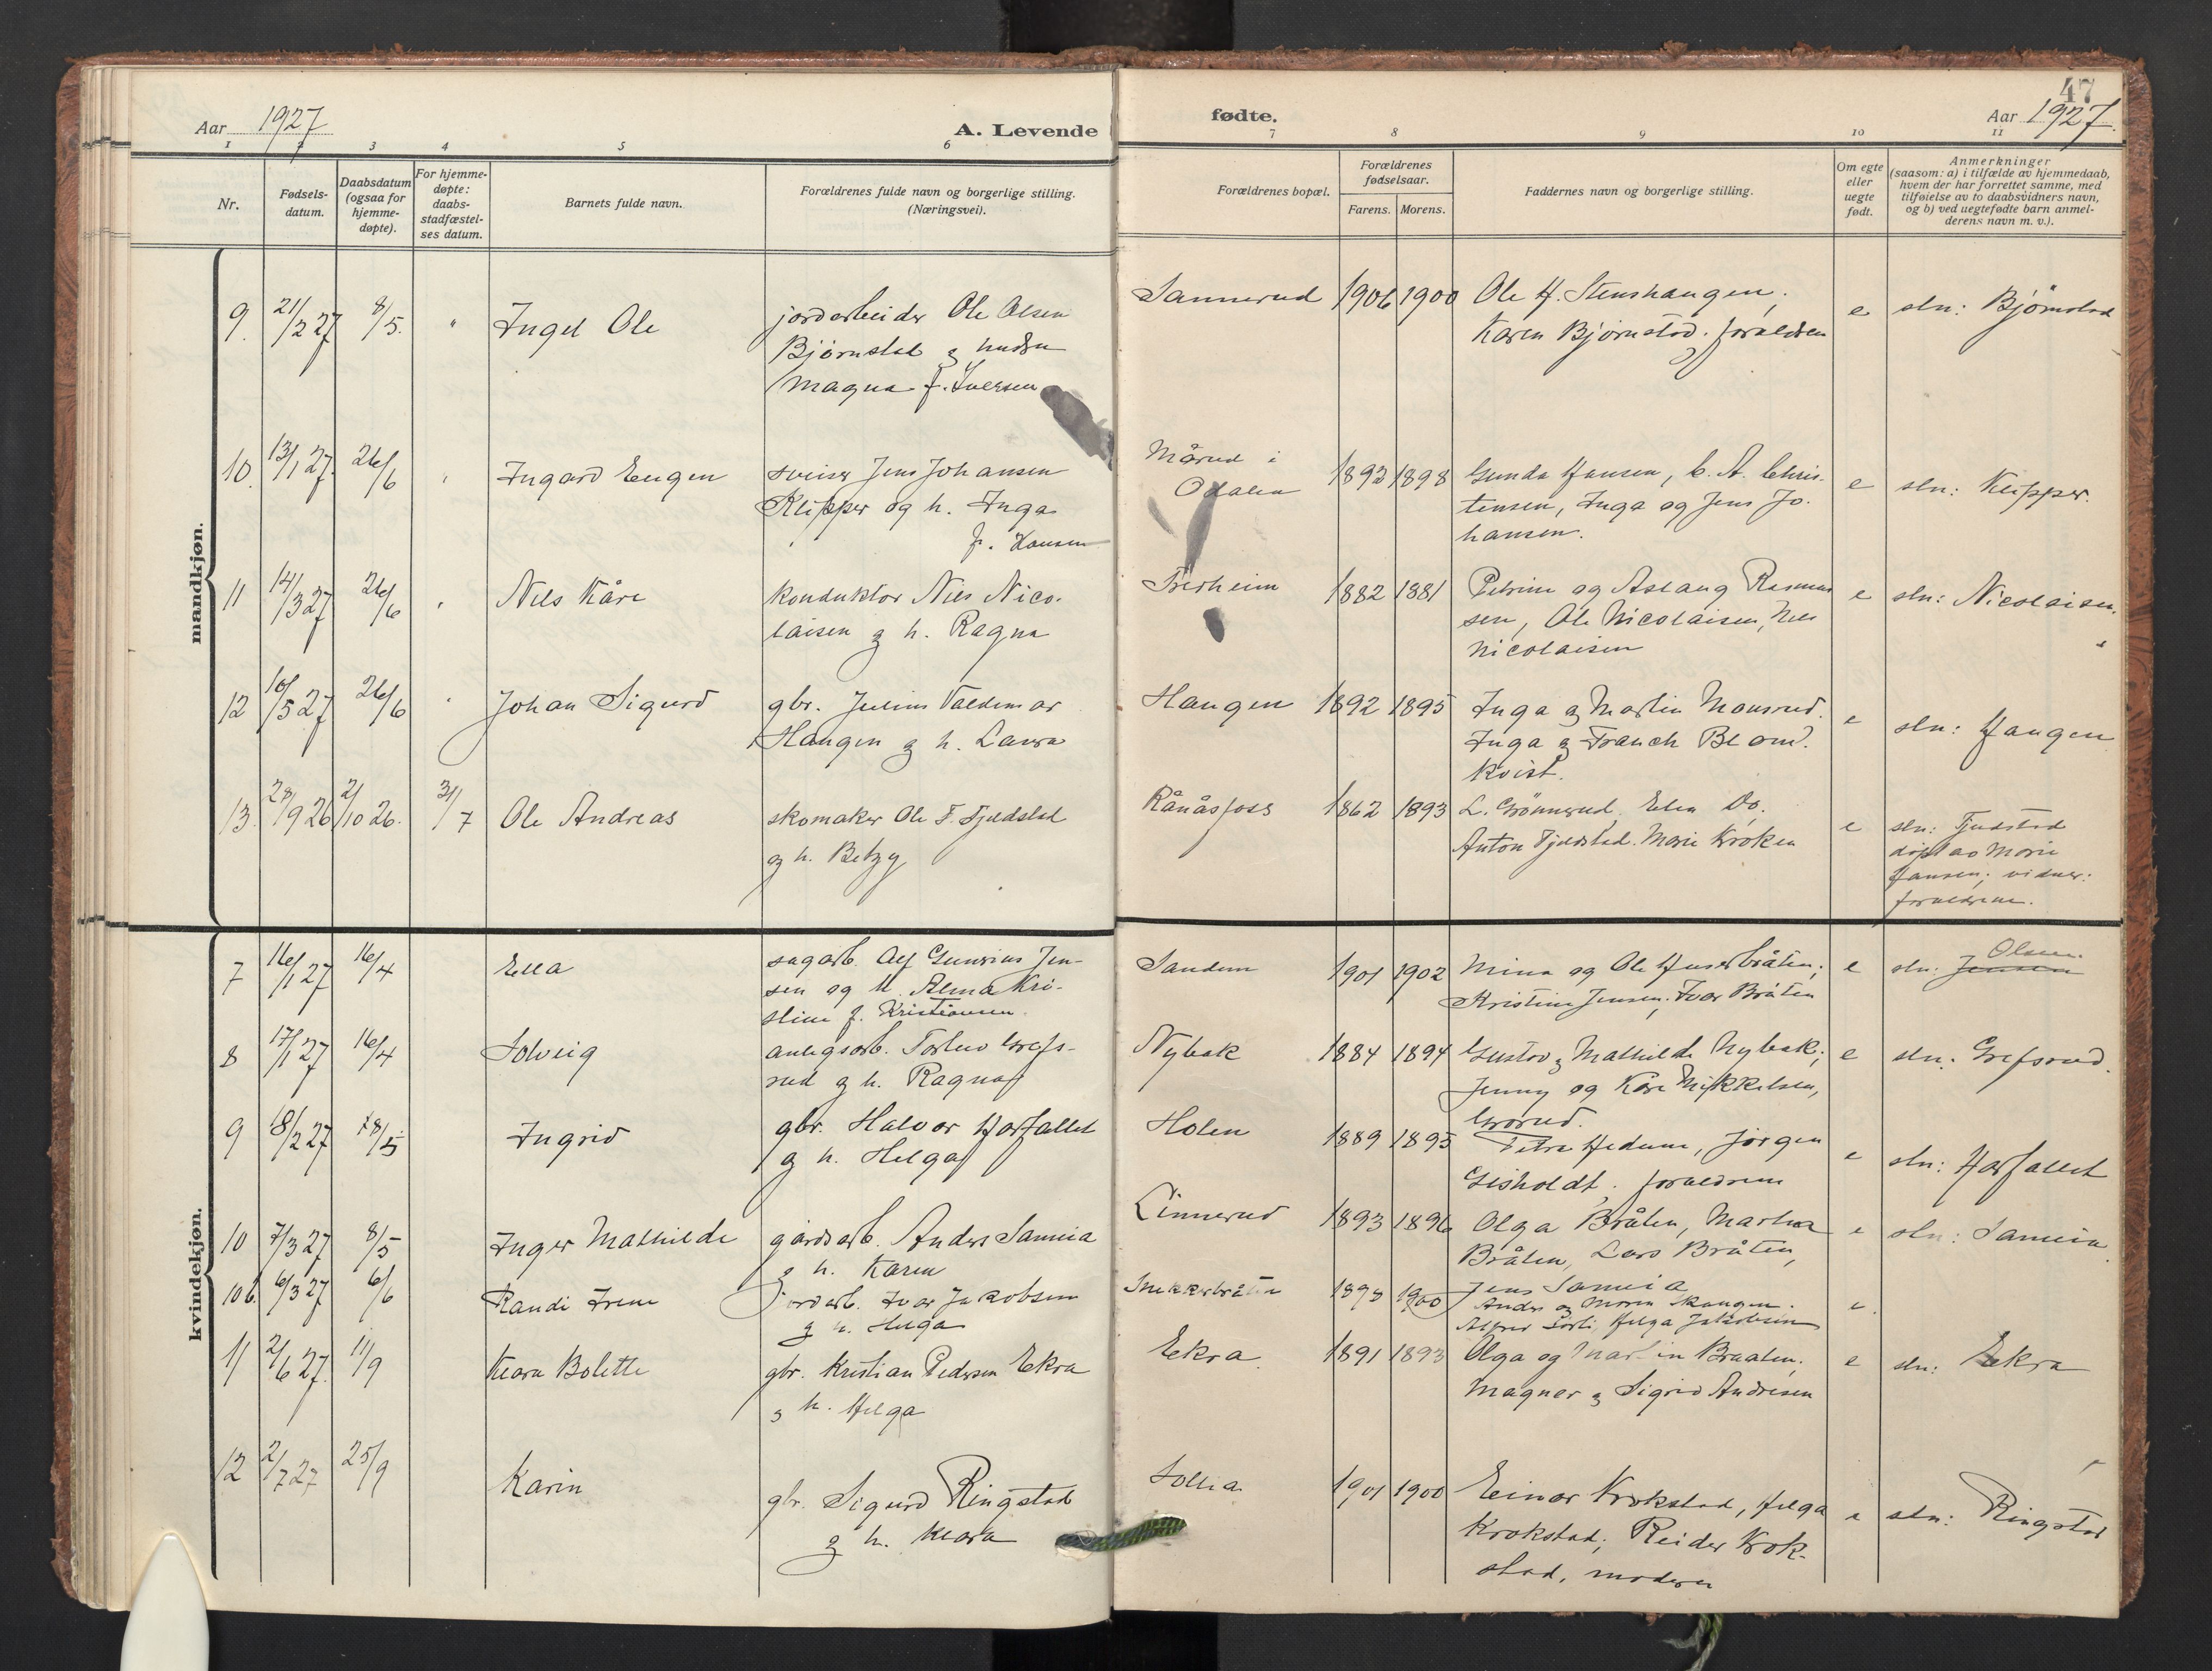 47
Aar 1927
A. Levende
fødte.
Aar 1927.
1 2 3 4 5 6 7 8 9 10 11
Nr.
Fødsels-
datum.
Daabsdatum
(ogsaa for
hjemme-
døpte).
For hjemme-
døpte:
daabs-
stadfæstel-
ses datum.
Barnets fulde navn.
Forældrenes fulde navn og borgerlige stilling.
(Næringsvei).
Forældrenes bopæl.
Forældrenes
fødselsaar.
Farens. Morens.
Faddernes navn og borgerlige stilling.
Om egte
eller
uegte
født.
Anmerkninger
(saasom: a) i tilfælde av hjemmedaab,
hvem der har forrettet samme, med
tilføielse av to daabsvidners navn,
og b) ved uegtefødte barn anmel-
derens navn m. v.).
mandkjøn.
9. 21/2 27 8/5. " Ole
jordarbeider Ole Olsen
Bjørnstad
Magna f. Iversen
Sannerud 1906 1900
Ole H. Stenshaugen;
Karen Bjørnstad. forældren
e
sln: Bjørnstad
10. 13/1 27 26/6 " Ingard Eugen
sveiser Jens Johansen
Klipper og h. Inga
f. Hansen
Mårud i
Odalen
1893 1898
Gunda Hansen, C. A. Chris-
tensen, Inga og Jens Jo-
hansen.
e
sln: Klipper.
11 14/3 27 26/6 " Nils Kåre
konduktør Nils Nico-
laisen og h. Ragna
1882 1881
Petrine og Aslaug Rasmus
sen, Ole Nicolaisen, Nils
Nicolaisen
e
sln: Nicolaisen.
12 10/5 27 26/6 " Johan Sigurd
gbr. Julius Valdemar
Haugen og h. Laura
Haugen 1892 1895
Inga og Martin Monsrud.
Inga og Franck Blom-
kvist.
e
sln: Haugen
13. 28/9 26 2/10 26. 31/7 Ole Andreas
skomaker Ole F. Fjeldstad
og h. Betzy
Rånåsfoss 1862 1893
L. Grønnerud, Elen Do.
Anton Fjeldstad. Marie Kroken
e
sln: Fjeldstad
døpt av Marie
Hansen; vidner:
forældrene.
kvindekjøn.
7 16/1 27 16/4 Ella
sagarb. Alf Gunerius Jen-
sen og h. Alma Kri-
stine f. Kristiansen
Sandum 1901 1902
Mina og Ole Huserbråten;
Kristine Jensen; Ivar Bråten
e
Olsen.
sln: Jensen
8 17/1 27 16/4 Solveig
anlegsarb. Torleiv Grefs-
rud og h. Ragna
Nybak 1884 1894
Gustav og Mathilde Nybak;
Jenny og Kåre Mikkelsen,
Grorud.
e
sln: Grefsrud.
9 18/2 27 8/5 Ingrid
gbr. Halvor Harfallet
og h. Helga
Holen 1889 1895
Petra Hedum, Jørgen
Gisholdt. forældrene
e
sln: Harfallet
10 7/3 27 8/5 Inger Mathilde
gårdsarb. Anders Sanneia
og h. Karen
Linnerud 1893 1896
Olga Bråten, Martha
Bråten, Lars Bråten,
Jens Sanneia
e
sln: Sanneia
10b. 6/3 27 6/6 Randi Irene
jordarb. Ivar Jakobsen
og h. Helga
Snekkerbråten 1898 1900
Anders og Maren Skaugen.
Alfred Sørli, Helga Jakobsen
e
11 2/6 27. 11/9 Klara Bolette
gbr. Kristian Pedersen Ekra
og h. Helga
Ekra 1891 1893
Olga og Martin Braaten;
Magner og Sigrid Andresen
e
sln: Ekra
12 2/7 27 25/9 Karin
gbr. Sigurd Ringstad
og h. Klara
Sollia 1901 1900
Einar Krokstad, Helga
Krokstad; Reidar Krok-
stad, moderen
e
sln: Ringstad